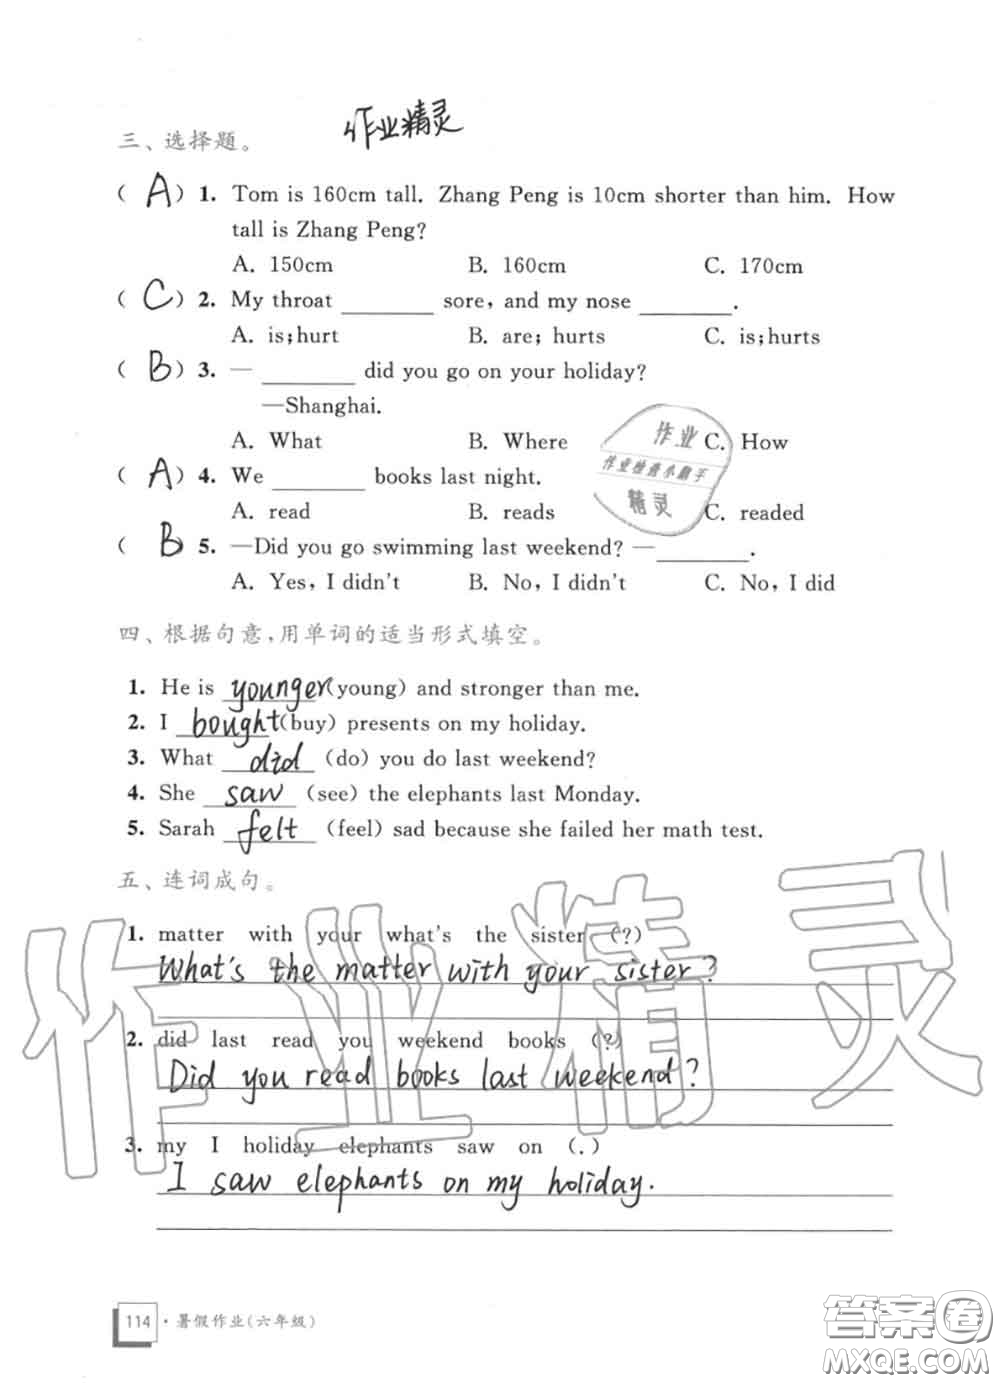 作业精灵
三、选择题。
( A ) 1. Tom is 160cm tall. Zhang Peng is 10cm shorter than him. How
tall is Zhang Peng?
A. 150cm B. 160cm C. 170cm
( C ) 2. My throat ________ sore, and my nose ________.
A. is;hurt B. are; hurts C. is;hurts
( B ) 3. — ________ did you go on your holiday?
—Shanghai.
A. What B. Where C. How
( A ) 4. We ________ books last night.
A. read B. reads C. readed
( B 5. —Did you go swimming last weekend? — ________.
A. Yes, I didn't B. No, I didn't C. No, I did
作业
作业检查小助手
精灵
四、根据句意,用单词的适当形式填空。
1. He is younger (young) and stronger than me.
2. I bought (buy) presents on my holiday.
3. What did (do) you do last weekend?
4. She saw (see) the elephants last Monday.
5. Sarah felt (feel) sad because she failed her math test.
五、连词成句。
1. matter with your what's the sister (?)
What's the matter with your sister?
2. did last read you weekend books (?)
Did you read books last weekend?
3. my I holiday elephants saw on (.)
I saw elephants on my holiday.
作业精灵
114 · 暑假作业(六年级)
答案圈
MXQE.COM